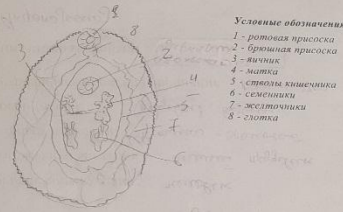 1
8
3
2
4
5
7
6
Условные обозначения
1 - ротовая присоска
2 - брюшная присоска
3 - яичник
4 - матка
5 - стволы кишечника
6 - семенники
7 - желточники
8 - глотка